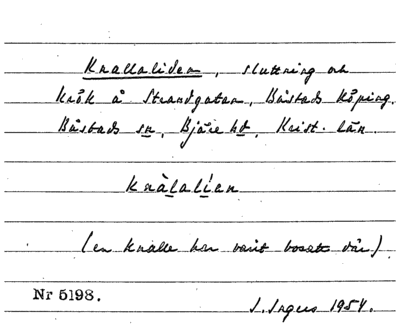 Knallaliden, sluttning och
krök å Strandgatan, Båstads köping.
Båstads sn, Bjäre hd, Krist. län.
knàlalíen
(en knalle har varit bosatt där)
Nr 5198.
J. Ingers 1954.